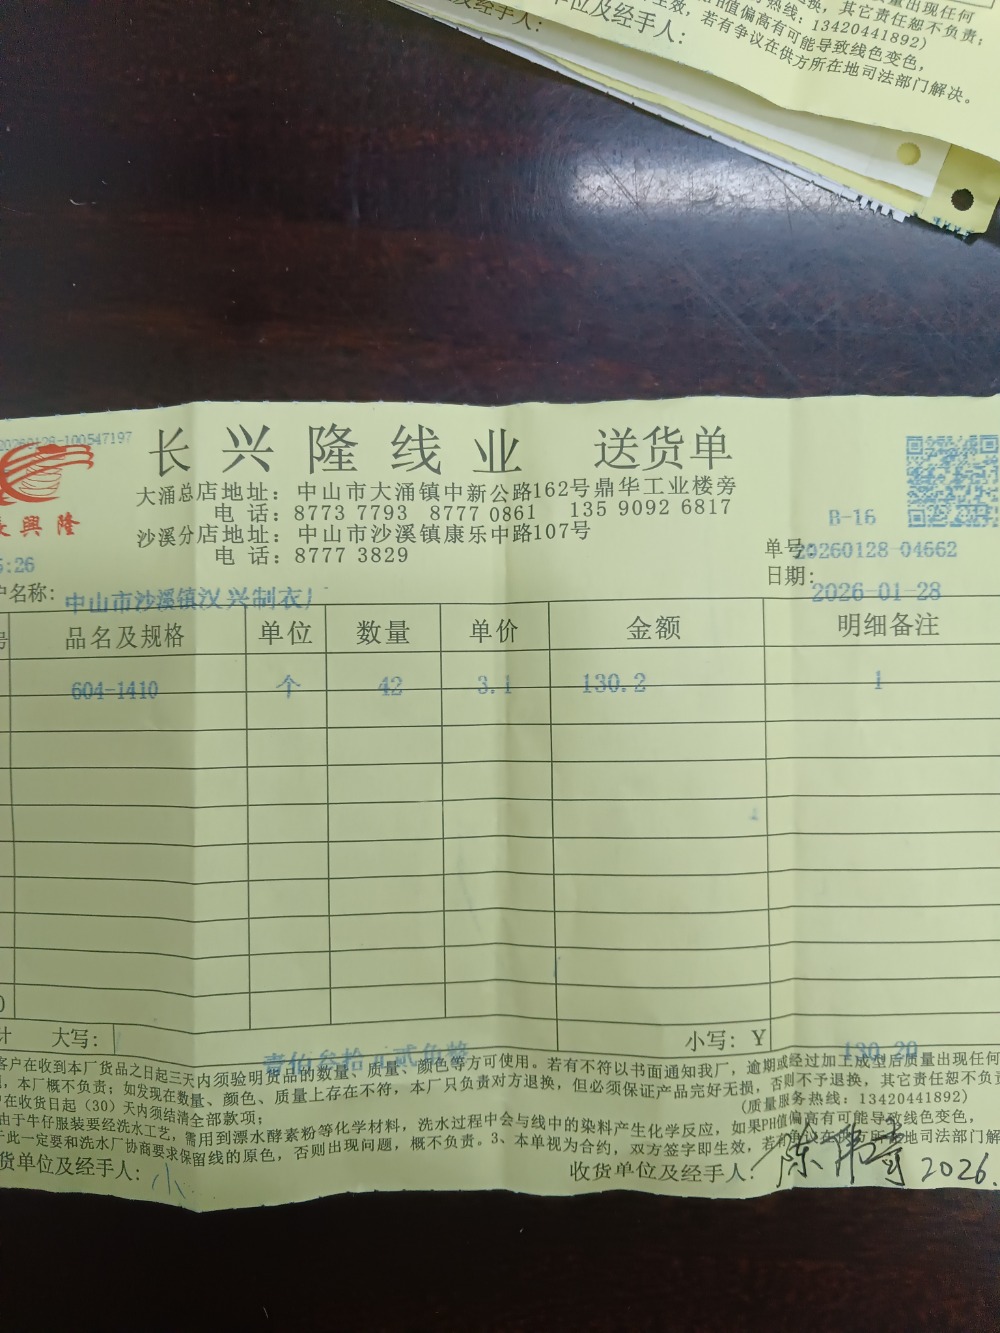 及经手人：
单位及经手人：
量出现任何
换，其它责任恕不负责；
热线：13420441892)
值偏高有可能导致线色变色，
生效，若有争议在供方所在地司法部门解决。
20260128-100547197
长兴隆线业 送货单
興隆
大涌总店地址：中山市大涌镇中新公路162号鼎华工业楼旁
电 话：8773 7793 8777 0861 135 9092 6817
沙溪分店地址：中山市沙溪镇康乐中路107号
电 话：8777 3829
B-16
单号：20260128-04662
日期：2026-01-28
5:26
户名称：中山市沙溪镇汉兴制衣厂
号 品名及规格 单位 数量 单价 金额 明细备注
604-1410 个 42 3.1 130.2 1
计 大写：壹佰叁拾元贰角整 小写：Y 130.20
客户在收到本厂货品之日起三天内须验明货品的数量、质量、颜色等方可使用。若有不符以书面通知我厂，逾期或经过加工成型后质量出现任何
，本厂概不负责；如发现在数量、颜色、质量上存在不符，本厂只负责对方退换，但必须保证产品完好无损，否则不予退换，其它责任恕不负责
户在收货日起（30）天内须结清全部款项；
(质量服务热线：13420441892)
由于牛仔服装要经洗水工艺，需用到漂水酵素粉等化学材料，洗水过程中会与线中的染料产生化学反应，如果PH值偏高有可能导致线色变色，
于此一定要和洗水厂协商要求保留线的原色，否则出现问题，概不负责。3、本单视为合约，双方签字即生效，若有争议在供方所在地司法部门解
货单位及经手人：小
收货单位及经手人： 2026.